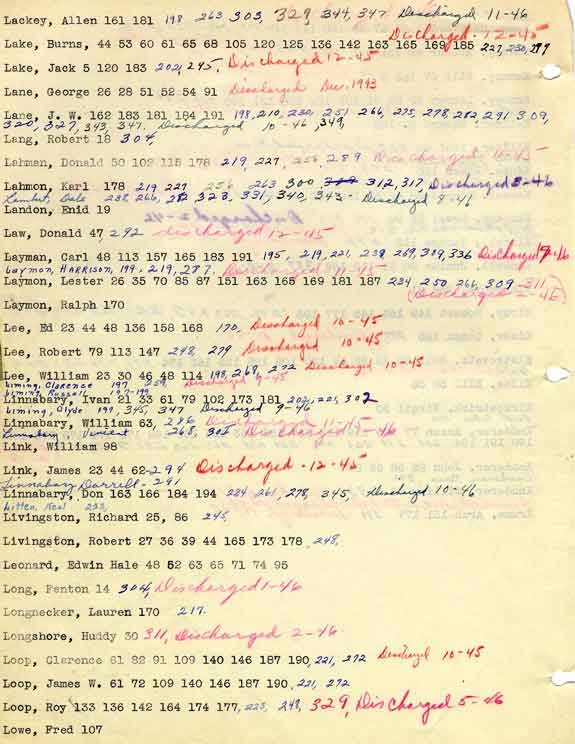 Lackey, Allen 161 181 198 263 303, 329 344, 347 Discharged 11-46
Discharged - 12-45
Lake, Burns, 44 53 60 61 65 68 105 120 125 136 142 163 165 169 185 227, 230,
Lake, Jack 5 120 183 202, 245, Discharged 12-45
Lane, George 26 28 51 52 54 91 Discharged Nov. 1943
Lane, J. W. 162 183 181 184 191 198, 210, 232, 251 266, 275, 278, 282, 291 309,
320, 327, 343, 347. Discharged 10-46, 349,
Lang, Robert 18 304,
Lahman, Donald 50 102 115 178 219, 227, 256, 289 Discharged -45
Lahmon, Karl 178 219 227 256 263 300, 312, 317, Discharged 8-46
Lambert, Dale 238, 266, 282 323, 331, 340, 343 - Discharged 8-46
Landon, Enid 19
Law, Donald 47, 292 Discharged 12-45
Layman, Carl 48 113 157 165 183 191 195, 219, 221, 238 269, 309, 336 Discharged 7-46
Laymon, HARRISON, 199, 219, 287. Discharged 11-45
Laymon, Lester 26 35 70 85 87 151 163 165 169 181 187 234, 250 266, 309 - 311
(Discharged -46)
Laymon, Ralph 170
Lee, Ed 23 44 48 136 158 168 170, Discharged 10-45
Lee, Robert 79 113 147 248, 279 Discharged 10-45
Lee, William 23 30 46 48 114 198, 268, 272 Discharged 10-45
Liming, Clarence 197 259, Discharged 9-45
Liming, Russell 197-199
Linnabary, Ivan 21 33 61 79 102 173 181 202, 221, 302
Liming, Clyde 199, 345, 347 Discharged 9-46
Linnabary, William 63, 286 Discharged 11-45
Linnabary Vincent 268, 302 Discharged -46
Link, William 98
Link, James 23 44 62-294 Discharged - 12-45
Linnabary Darrell - 291
Linnabary, Don 163 166 184 194 224 261, 278, 345, Discharged 10-46
Litten, Neal 233,
Livingston, Richard 25, 86 245,
Livingston, Robert 27 36 39 44 165 173 178 248,
Leonard, Edwin Hale 48 52 63 65 71 74 95
Long, Fenton 14 304, Discharged 1-46
Longnecker, Lauren 170 217.
Longshore, Huddy 30 311, Discharged 2-46
Loop, Clarence 61 82 91 109 140 146 187 190, 221, 272 Discharged 10-45
Loop, James W. 61 72 109 140 146 187 190, 221, 272
Loop, Roy 133 136 142 164 174 177, 223, 248, 329, Discharged 5-46
Lowe, Fred 107